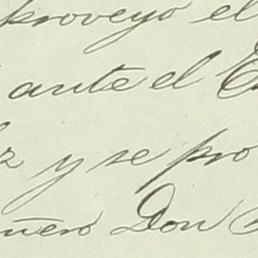 proveyo el
ante el E
z y se pro
uñero Don